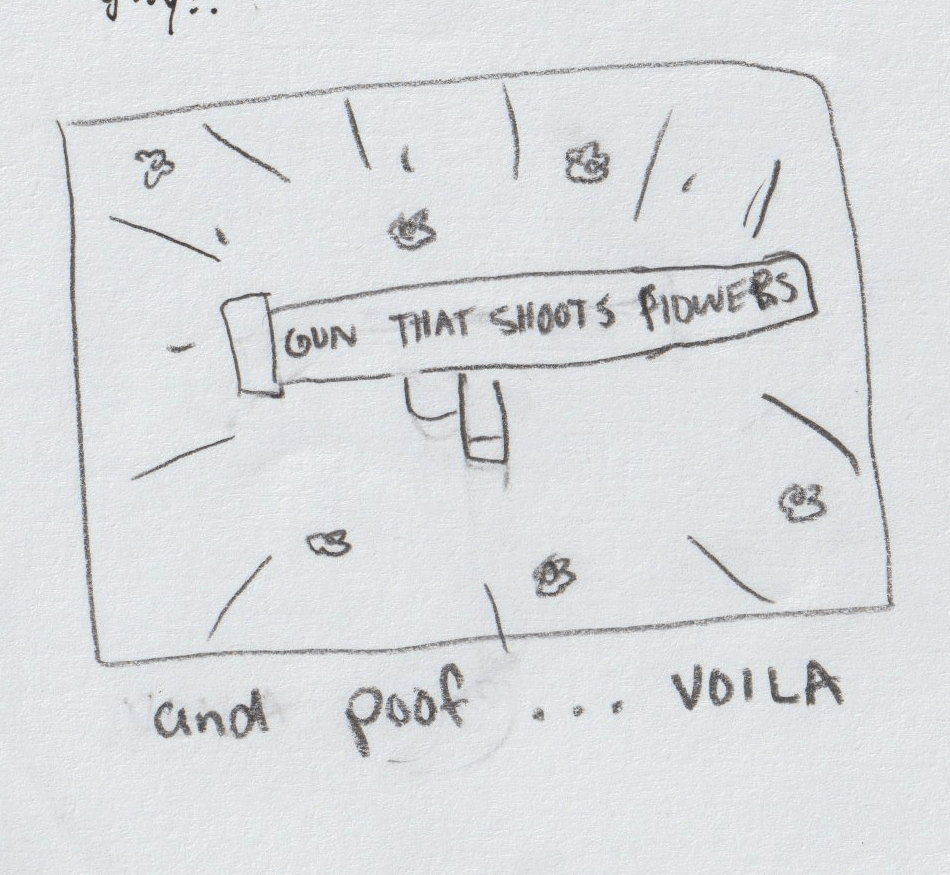 GUN THAT SHOOTS FlOWERS
and poof ... VOILA